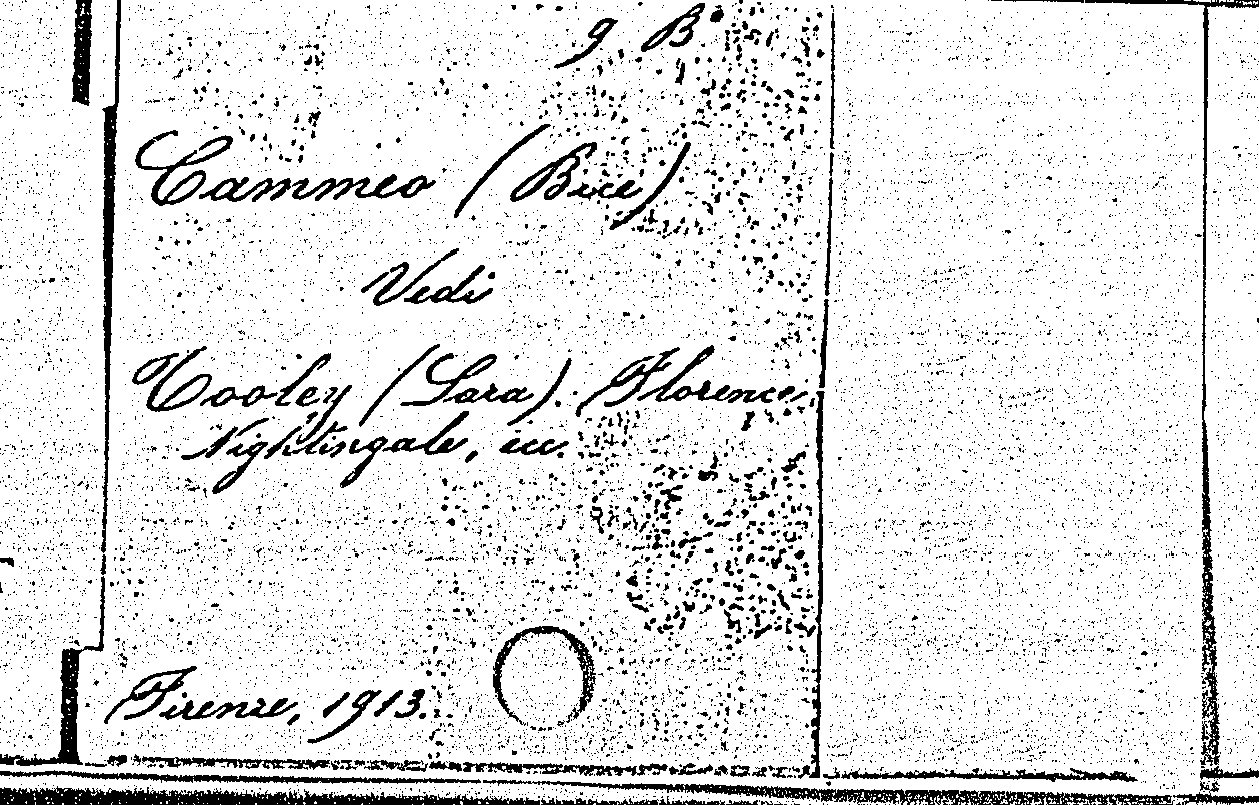 g. B.
Cammeo (Bice)
Vedi
Tooley (Sara). Florence
Nightingale, ecc.
Firenze, 1913.